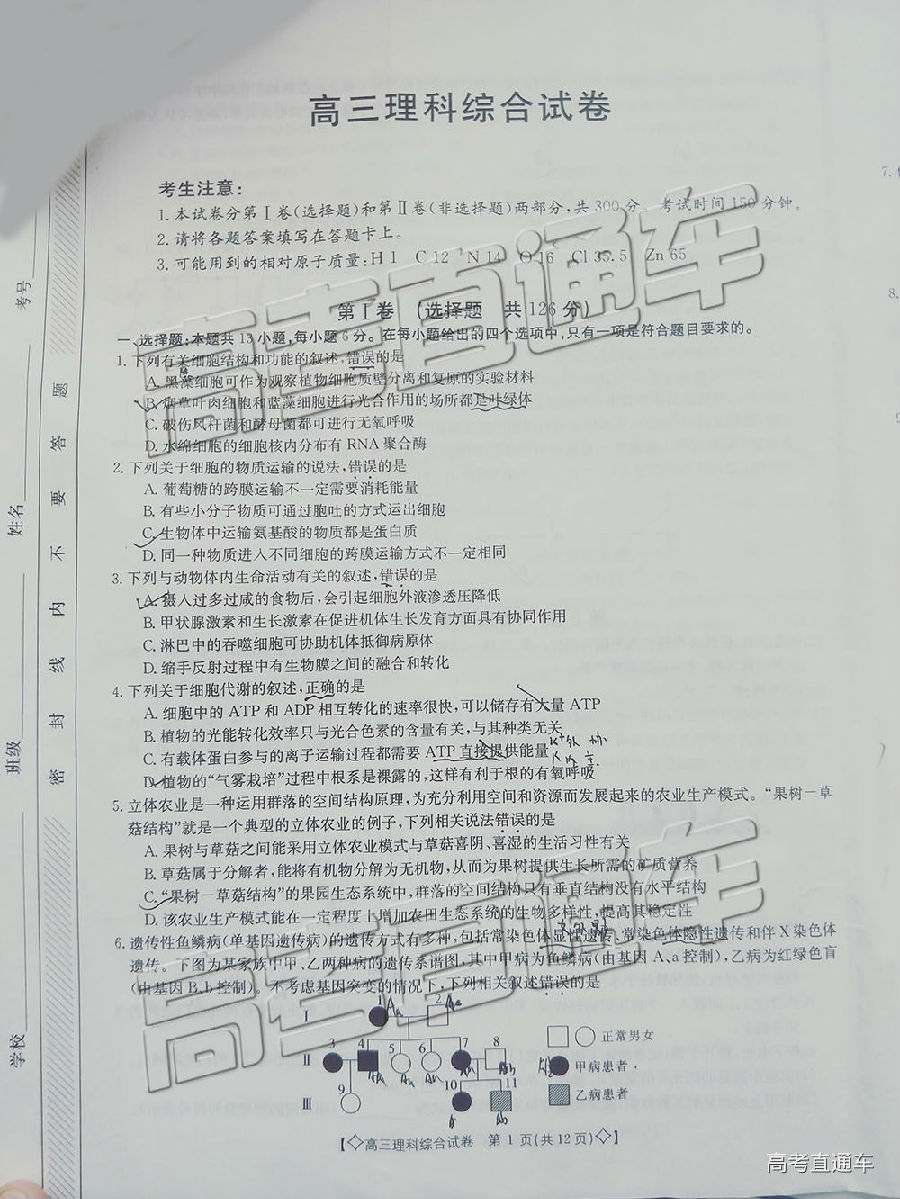 高三理科综合试卷
考生注意:
1. 本试卷分第Ⅰ卷(选择题)和第Ⅱ卷(非选择题)两部分,共300分。考试时间150分钟。
2. 请将各题答案填写在答题卡上。
3. 可能用到的相对原子质量:H 1 C 12 N 14 O 16 Cl 35.5 Zn 65
第Ⅰ卷 (选择题 共126分)
一、选择题:本题共13小题,每小题6分。在每小题给出的四个选项中,只有一项是符合题目要求的。
1. 下列有关细胞结构和功能的叙述,错误的是
A. 黑藻细胞可作为观察植物细胞质壁分离和复原的实验材料
B. 烟草叶肉细胞和蓝藻细胞进行光合作用的场所都是叶绿体
C. 破伤风杆菌和酵母菌都可进行无氧呼吸
D. 水绵细胞的细胞核内分布有RNA聚合酶
2. 下列关于细胞的物质运输的说法,错误的是
A. 葡萄糖的跨膜运输不一定需要消耗能量
B. 有些小分子物质可通过胞吐的方式运出细胞
C. 生物体中运输氨基酸的物质都是蛋白质
D. 同一种物质进入不同细胞的跨膜运输方式不一定相同
3. 下列与动物体内生命活动有关的叙述,错误的是
A. 摄入过多过咸的食物后,会引起细胞外液渗透压降低
B. 甲状腺激素和生长激素在促进机体生长发育方面具有协同作用
C. 淋巴中的吞噬细胞可协助机体抵御病原体
D. 缩手反射过程中有生物膜之间的融合和转化
4. 下列关于细胞代谢的叙述,正确的是
A. 细胞中的ATP和ADP相互转化的速率很快,可以储存有大量ATP
B. 植物的光能转化效率只与光合色素的含量有关,与其种类无关
C. 有载体蛋白参与的离子运输过程都需要ATP直接提供能量
D. 植物的“气雾栽培”过程中根系是裸露的,这样有利于根的有氧呼吸
5. 立体农业是一种运用群落的空间结构原理,为充分利用空间和资源而发展起来的农业生产模式。“果树—草
菇结构”就是一个典型的立体农业的例子,下列相关说法错误的是
A. 果树与草菇之间能采用立体农业模式与草菇喜阴、喜湿的生活习性有关
B. 草菇属于分解者,能将有机物分解为无机物,从而为果树提供生长所需的矿质营养
C. “果树—草菇结构”的果园生态系统中,群落的空间结构只有垂直结构没有水平结构
D. 该农业生产模式能在一定程度上增加农田生态系统的生物多样性,提高其稳定性
6. 遗传性鱼鳞病(单基因遗传病)的遗传方式有多种,包括常染色体显性遗传、常染色体隐性遗传和伴X染色体
遗传。下图为某家族中甲、乙两种病的遗传系谱图,其中甲病为鱼鳞病(由基因A、a控制),乙病为红绿色盲
(由基因B、b控制)。不考虑基因突变的情况下,下列相关叙述错误的是
Ⅰ 1 2
Ⅱ 3 4 5 6 7 8
Ⅲ 9 10 11
正常男女
甲病患者
乙病患者
【◇高三理科综合试卷 第1页(共12页)◇】
学校
班级
姓名
考号
密封线内不要答题
7.
8.
高考直通车
高考直通车
高考直通车